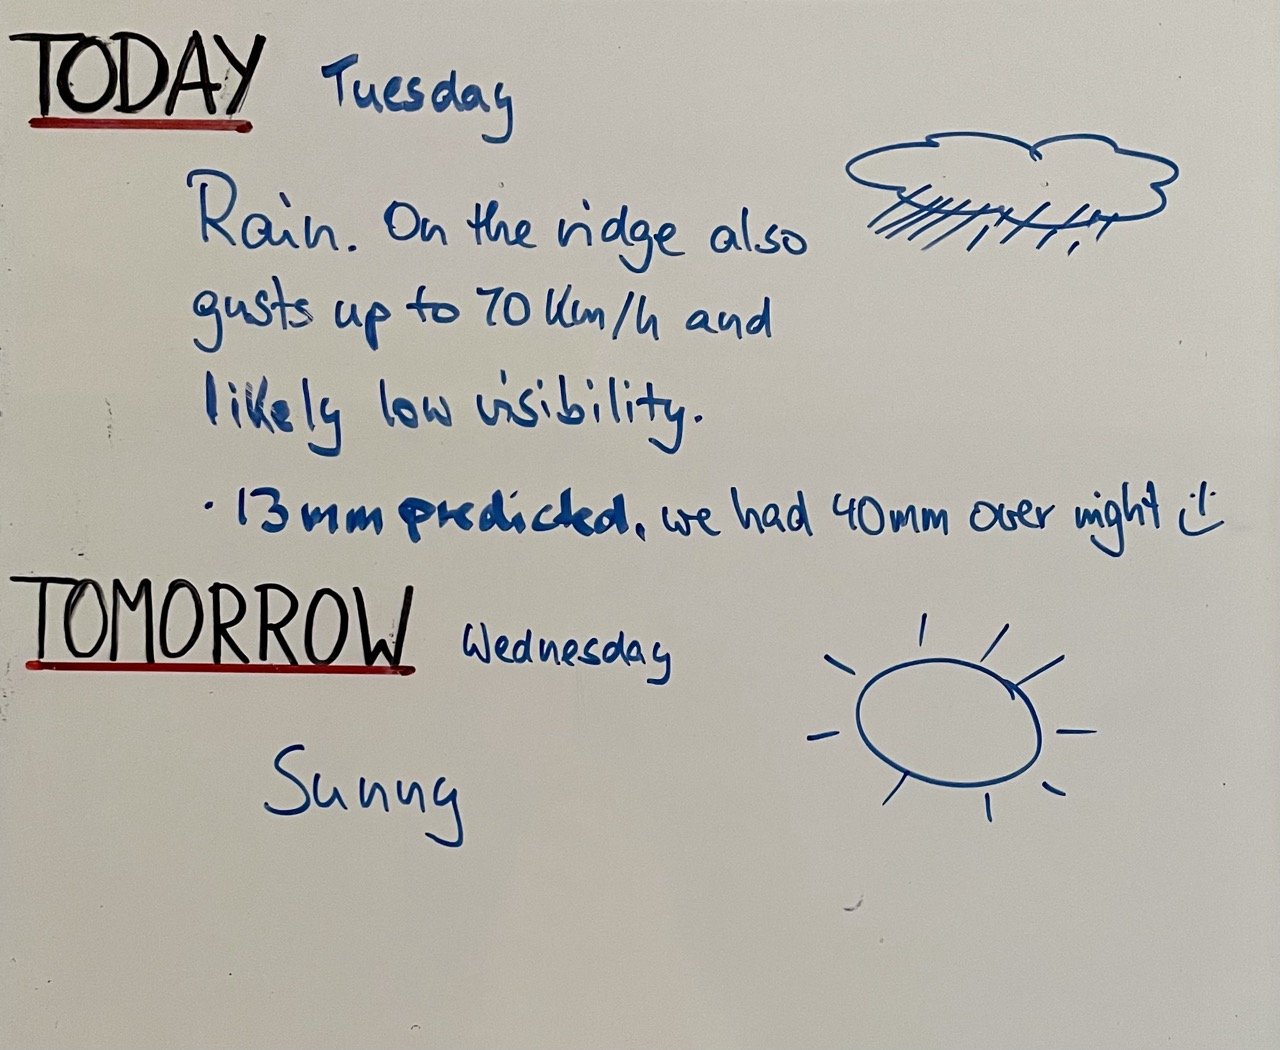 TODAY Tuesday
Rain. On the ridge also
gusts up to 70 Km/h and
likely low visibility.
· 13mm predicted, we had 40mm over night :)
TOMORROW Wednesday
Sunny